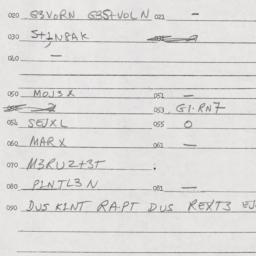 020 G3VORN G3S+VOLN 021 –
030 S+1N8AK
040 –
050 MOJ3X 051 –
053 G1.RN7
054 SEJXL 055 0
060 MARX 061 –
070 M3RUZ+3T
080 P1NTL3N 081 –
090 DUS K1NT RA.PT DUS REXT3 EJ